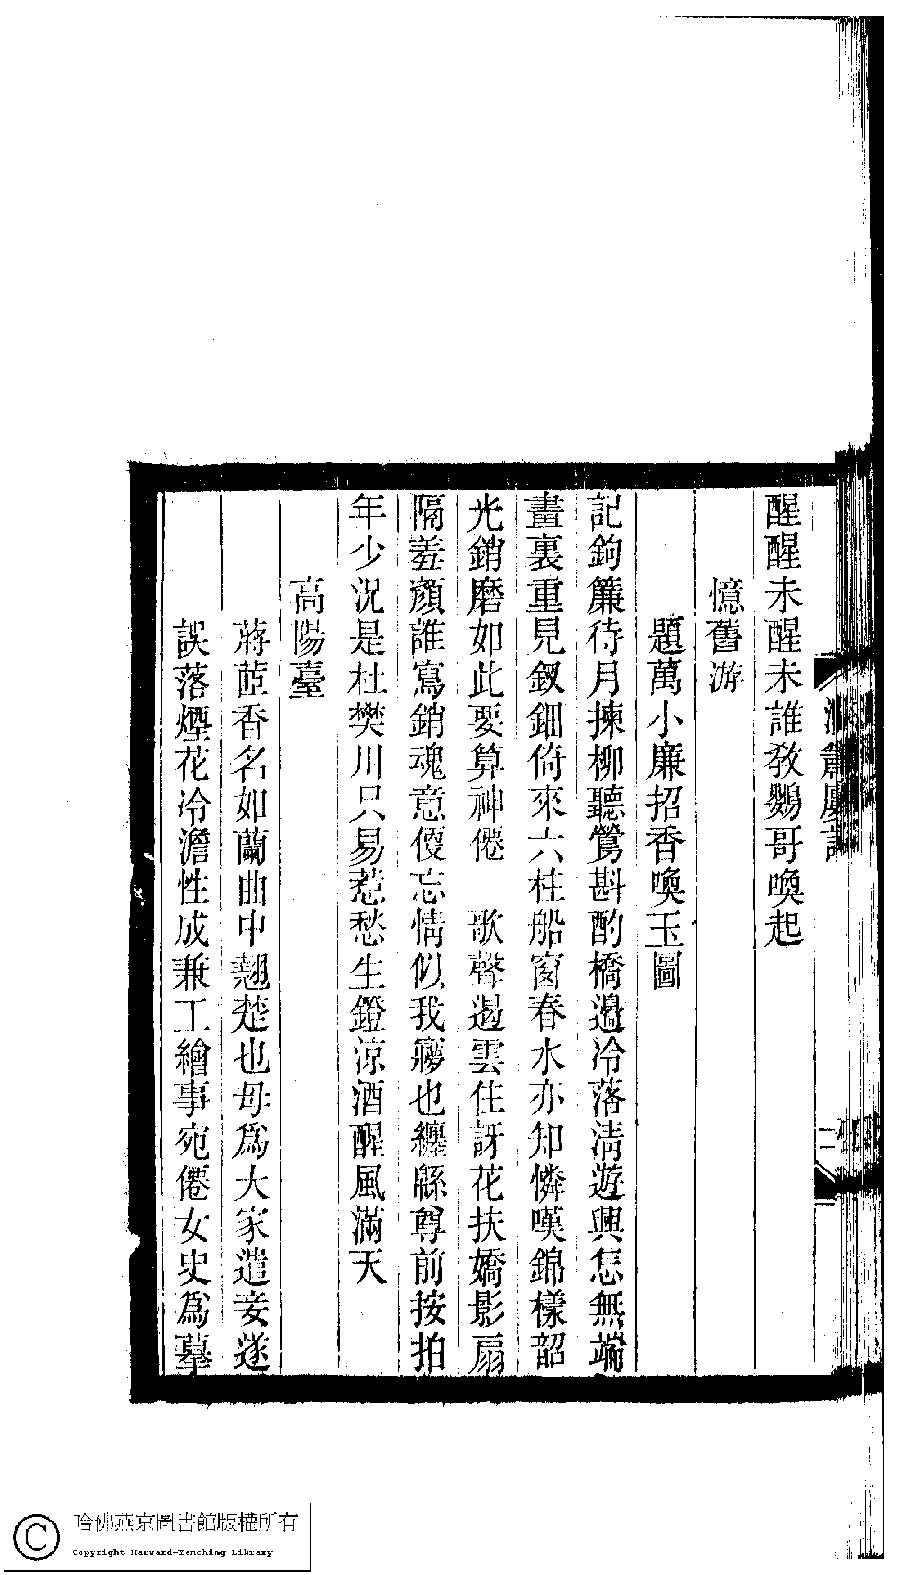 醒醒未醒未誰敎鸚哥喚起
憶舊游
題萬小廉招香喚玉圖
記鉤簾待月揀柳聽鶯斟酌橋邊冷落淸遊興怎無端
畫裏重見釵鈿倚來六柱船窗春水亦知憐嘆錦樣韶
光銷磨如此要算神倦　歌聲遏雲住訝花扶嬌影扇
隔羞顏誰寫銷魂意便忘情似我癡也纏緜尊前按拍
年少況是杜樊川只易惹愁生鐙涼酒醒風滿天
高陽臺
蔣茝香名如蘭曲中翹楚也母爲大家遣妾遂
誤落煙花冷澹性成兼工繪事宛僊女史爲摹
二
哈佛燕京圖書館版權所有
Copyright Harvard-Yenching Library